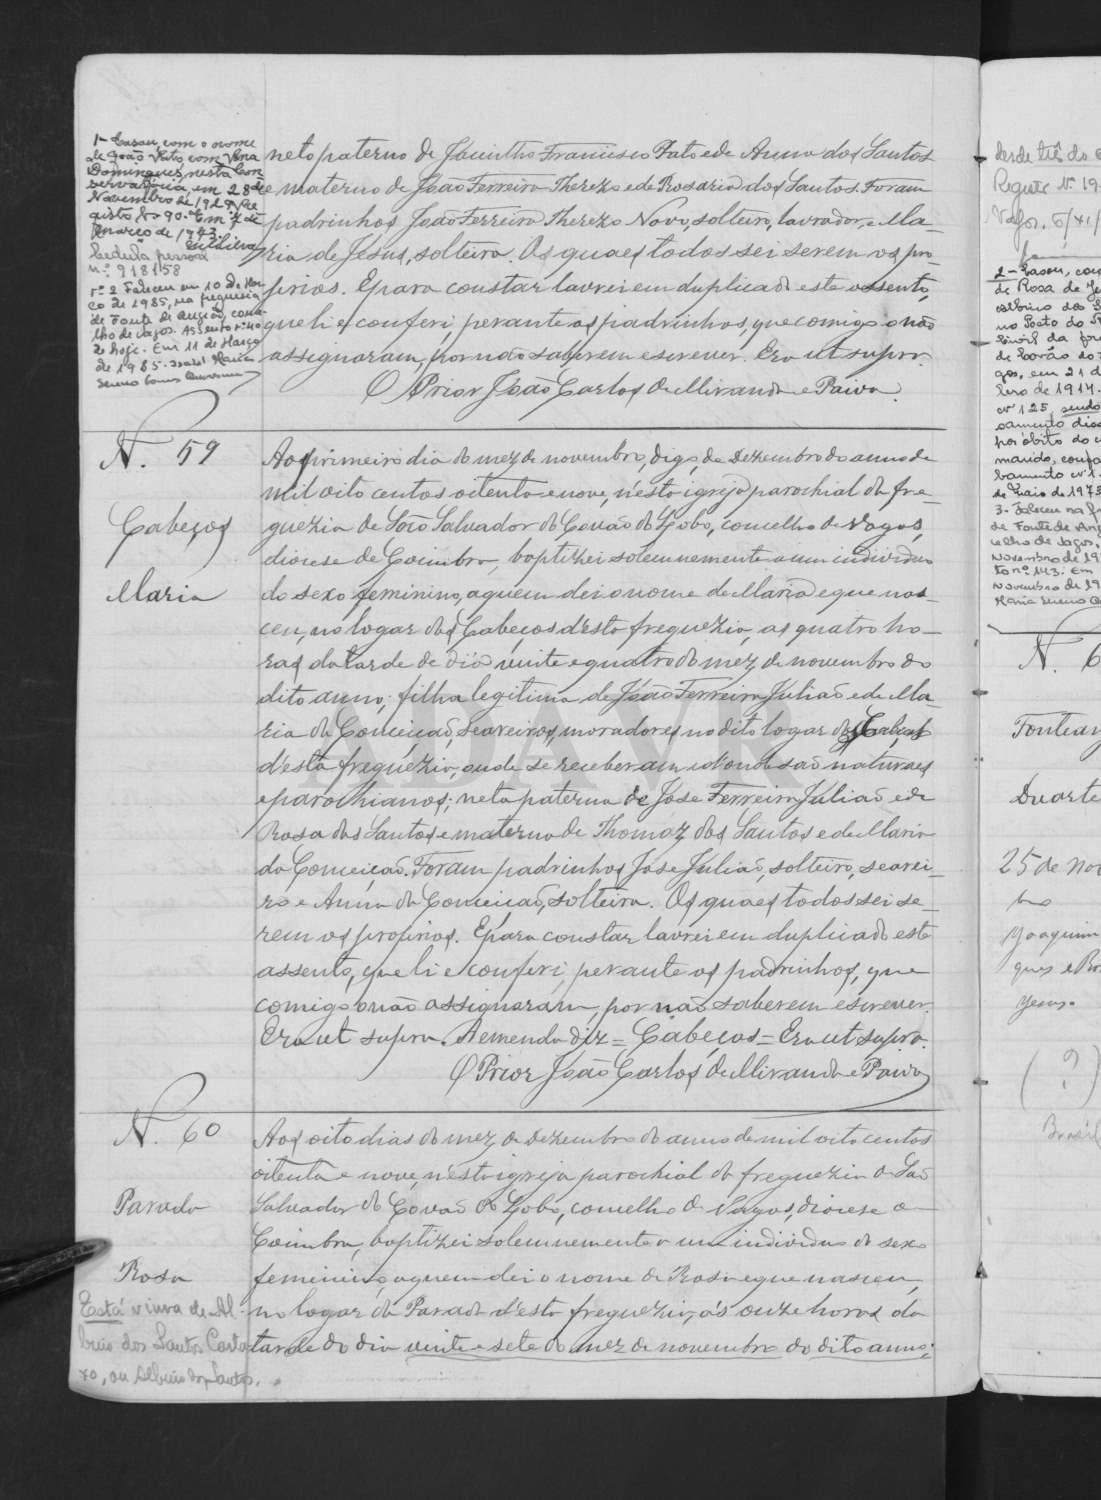 1- Casou, com o nome
de João Pato, com Anna
Domingues, nesta Con-
servatória, em 28 de
Novembro de 1927. Re-
gisto No 90. Em 7 de
Março de 1943.
Cedula pessoal
n.º 918158
nº 2 Faleceu em 10 de Mar-
ço de 1985, na freguesia
de Fonte de Angeão, conce-
lho de Vagos. Assento nº 40
de hoje. Em 11 de Março
de 1985.
neto paterno de Jacintho Francisco Pato e de Anna dos Santos
e materno de João Ferreira Therezo e de Rosaria dos Santos. Foram
padrinhos João Ferreira Therezo Novo, solteiro, lavrador, e Ma-
ria de Jesus, solteira. Os quaes todos sei serem os pro-
prios. E para constar lavrei em duplicado este assento,
que li e conferi, perante os padrinhos, que comigo o não
assignaram, por não saberem escrever. Era ut supra.
O Prior João Carlos de Miranda e Paiva.
N. 59
Cabeços
Maria
Ao primeiro dia do mez de novembro, digo, de Dezembro do anno de
mil oito centos oitenta e nove, n'esta igreja parochial da fre-
guezia de São Salvador do Covão do Lobo, concelho de Vagos,
diocese de Coimbra, baptizei solemnemente a um individuo
do sexo feminino, a quem dei o nome de Maria e que nas-
ceu, no logar dos Cabeços d'esta freguezia, as quatro ho-
ras da tarde de dia vinte e quatro do mez de novembro do
dito anno; filha legitima de João Ferreira Julião e de Ma-
ria da Conceição, seareiros, moradores no dito logar dos Cabeços
d'esta freguezia, onde se receberam e d'onde são naturaes
e parochianos; neta paterna de José Ferreira Julião e de
Rosa dos Santos e materna de Thomaz dos Santos e de Maria
da Conceição. Foram padrinhos José Julião, solteiro, searei-
ro e Anna da Conceição, solteira. Os quaes todos sei se-
rem os proprios. E para constar lavrei em duplicado este
assento, que li e conferi, perante os padrinhos, que
comigo o não assignaram, por não saberem escrever.
Era ut supra. A emenda diz = Cabeços = Era ut supra.
O Prior João Carlos de Miranda e Paiva
N. 60
Parada
Rosa
Está viuva de Al-
bino dos Santos Carta-
xo, ou Albino dos Santos.
Aos oito dias do mez de Dezembro do anno de mil oito centos
oitenta e nove, n'esta igreja parochial da freguezia de São
Salvador do Covão do Lobo, concelho de Vagos, diocese de
Coimbra, baptizei solemnemente a um individuo do sexo
feminino, a quem dei o nome de Rosa e que nasceu,
no logar da Parada d'esta freguezia, ás onze horas da
tarde do dia vinte e sete do mez de novembro do dito anno;
2- Casou, com
de Rosa de
no Posto do
Civil da fre
de Covão do
gos, em 21 d
bro de 1914.
nº 125, sendo
samento diss
por óbito do
marido,
bamento nº 1.
de Maio de 1973
3- Faleceu na f
de Fonte de Ang
celho de Vagos,
novembro de 19
to nº 143. Em
novembro de 19
N. 6
Fontean
Duarte
25 de Nov
bro
Joaquim
ques e
Jesus.
(?)
Brasil
ADAVR